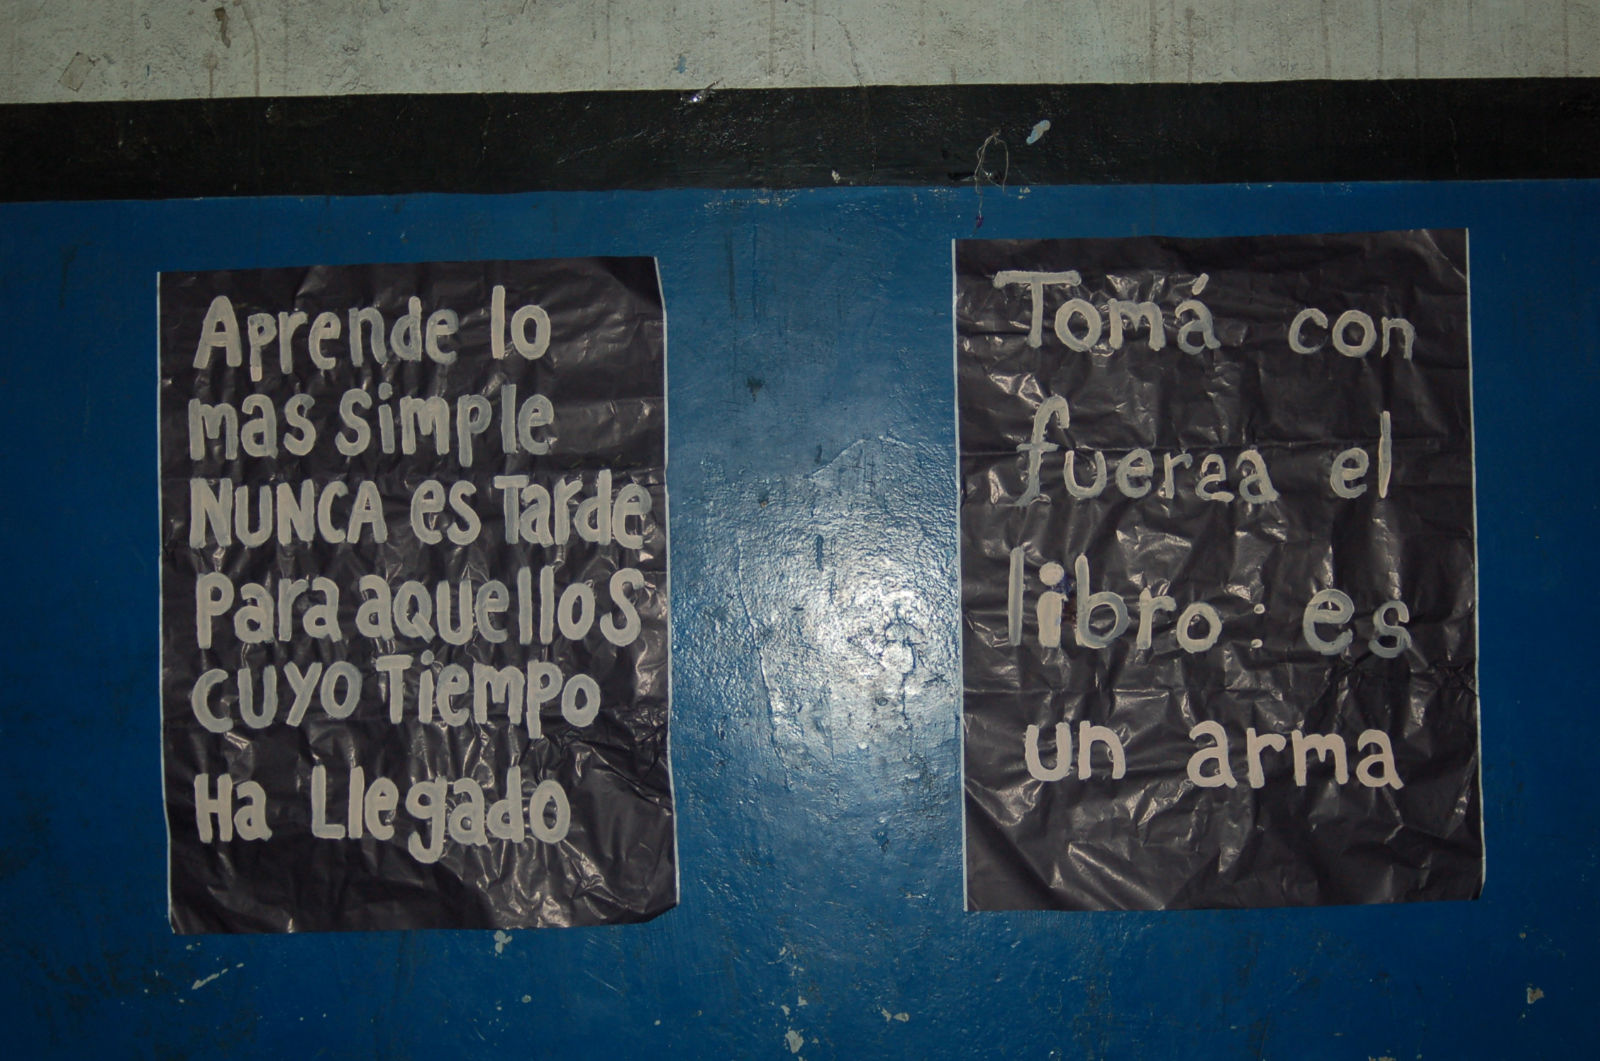 Aprende lo
mas simple
NUNCA es Tarde
Para aquellos
cuyo Tiempo
Ha Llegado
Tomá con
fuerza el
libro: es
un arma